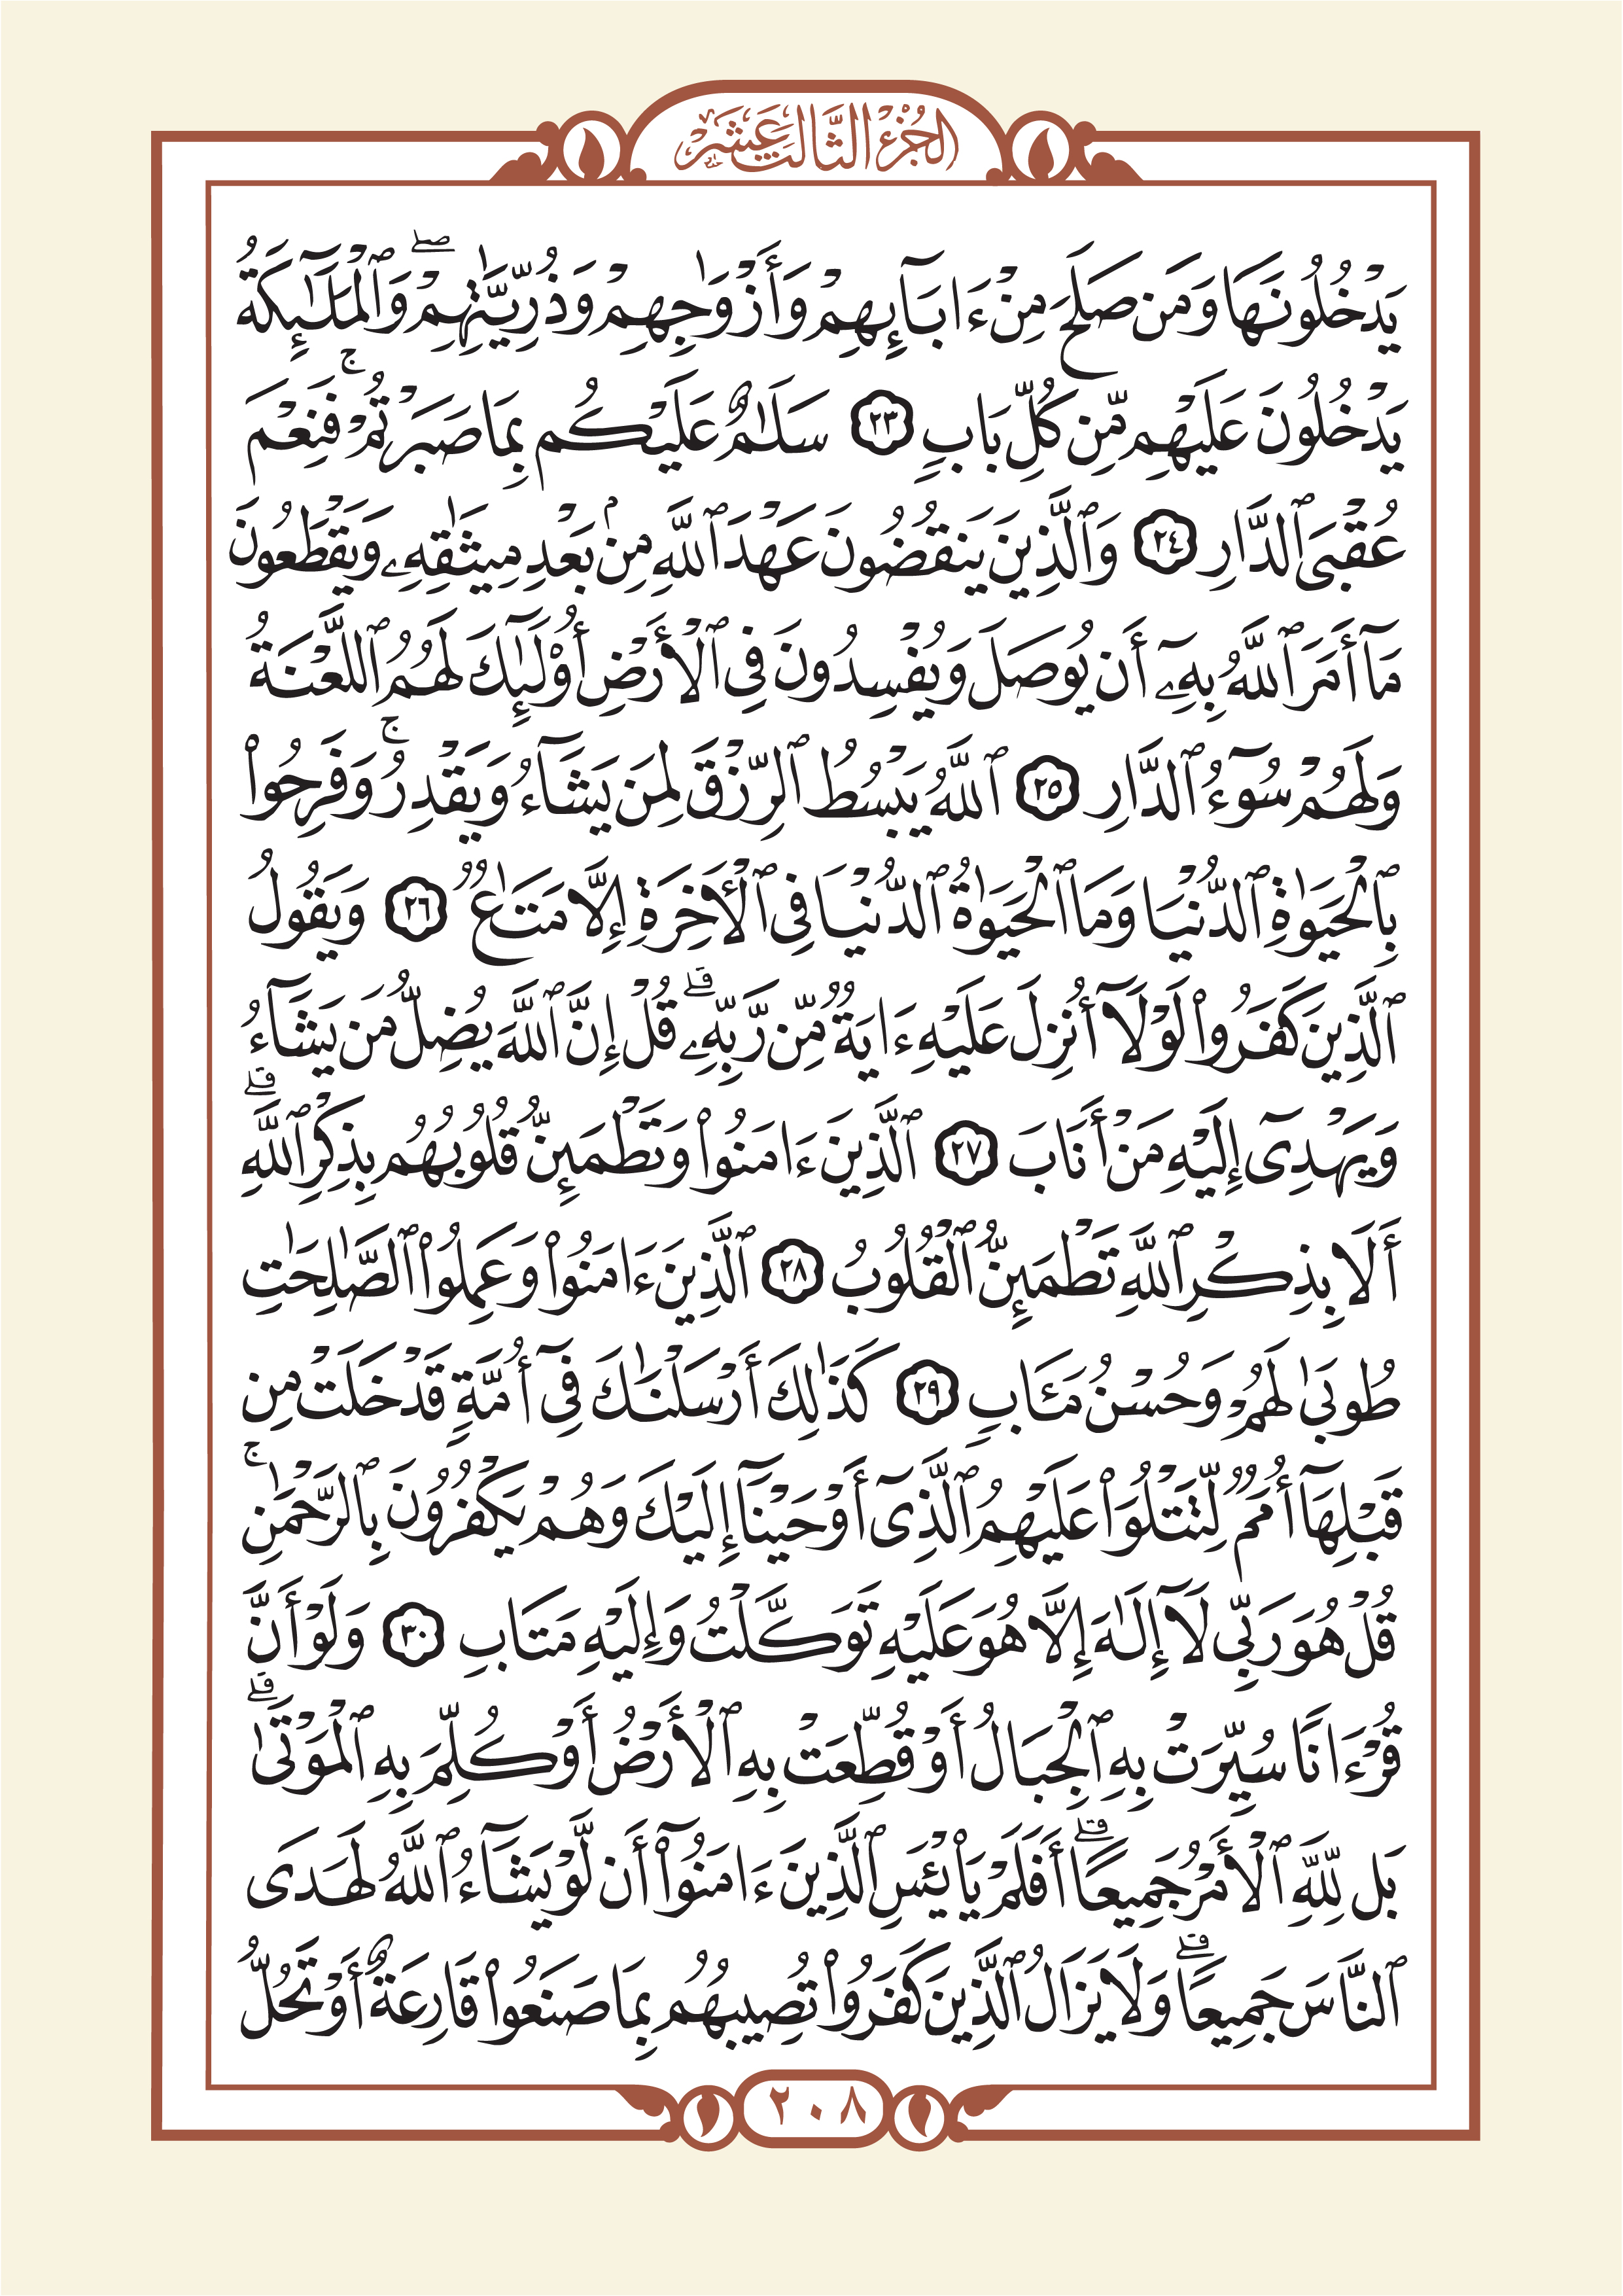 الجُزْءُ الثَّالِث عَشَر
يَدْخُلُونَهَا وَمَن صَلَحَ مِنْ ءَابَآئِهِمْ وَأَزْوَٰجِهِمْ وَذُرِّيَّٰتِهِمْۖ وَٱلْمَلَٰٓئِكَةُ
يَدْخُلُونَ عَلَيْهِم مِّن كُلِّ بَابٍ ٢٣ سَلَٰمٌ عَلَيْكُم بِمَا صَبَرْتُمْۚ فَنِعْمَ
عُقْبَى ٱلدَّارِ ٢٤ وَٱلَّذِينَ يَنقُضُونَ عَهْدَ ٱللَّهِ مِنۢ بَعْدِ مِيثَٰقِهِۦ وَيَقْطَعُونَ
مَآ أَمَرَ ٱللَّهُ بِهِۦٓ أَن يُوصَلَ وَيُفْسِدُونَ فِى ٱلْأَرْضِ أُو۟لَٰٓئِكَ لَهُمُ ٱللَّعْنَةُ
وَلَهُمْ سُوٓءُ ٱلدَّارِ ٢٥ ٱللَّهُ يَبْسُطُ ٱلرِّزْقَ لِمَن يَشَآءُ وَيَقْدِرُۚ وَفَرِحُوا۟
بِٱلْحَيَوٰةِ ٱلدُّنْيَا وَمَا ٱلْحَيَوٰةُ ٱلدُّنْيَا فِى ٱلْأَخِرَةِ إِلَّا مَتَٰعٌ ٢٦ وَيَقُولُ
ٱلَّذِينَ كَفَرُوا۟ لَوْلَآ أُنزِلَ عَلَيْهِ ءَايَةٌ مِّن رَّبِّهِۦۗ قُلْ إِنَّ ٱللَّهَ يُضِلُّ مَن يَشَآءُ
وَيَهْدِىٓ إِلَيْهِ مَنْ أَنَابَ ٢٧ ٱلَّذِينَ ءَامَنُوا۟ وَتَطْمَئِنُّ قُلُوبُهُم بِذِكْرِ ٱللَّهِۗ
أَلَا بِذِكْرِ ٱللَّهِ تَطْمَئِنُّ ٱلْقُلُوبُ ٢٨ ٱلَّذِينَ ءَامَنُوا۟ وَعَمِلُوا۟ ٱلصَّٰلِحَٰتِ
طُوبَىٰ لَهُمْ وَحُسْنُ مَـَٔابٍ ٢٩ كَذَٰلِكَ أَرْسَلْنَٰكَ فِىٓ أُمَّةٍ قَدْ خَلَتْ مِن
قَبْلِهَآ أُمَمٌ لِّتَتْلُوَا۟ عَلَيْهِمُ ٱلَّذِىٓ أَوْحَيْنَآ إِلَيْكَ وَهُمْ يَكْفُرُونَ بِٱلرَّحْمَٰنِۚ
قُلْ هُوَ رَبِّى لَآ إِلَٰهَ إِلَّا هُوَ عَلَيْهِ تَوَكَّلْتُ وَإِلَيْهِ مَتَابِ ٣٠ وَلَوْ أَنَّ
قُرْءَانًا سُيِّرَتْ بِهِ ٱلْجِبَالُ أَوْ قُطِّعَتْ بِهِ ٱلْأَرْضُ أَوْ كُلِّمَ بِهِ ٱلْمَوْتَىٰۗ
بَل لِّلَّهِ ٱلْأَمْرُ جَمِيعًاۗ أَفَلَمْ يَا۟يْـَٔسِ ٱلَّذِينَ ءَامَنُوٓا۟ أَن لَّوْ يَشَآءُ ٱللَّهُ لَهَدَى
ٱلنَّاسَ جَمِيعًاۗ وَلَا يَزَالُ ٱلَّذِينَ كَفَرُوا۟ تُصِيبُهُم بِمَا صَنَعُوا۟ قَارِعَةٌ أَوْ تَحُلُّ
٢٠٨